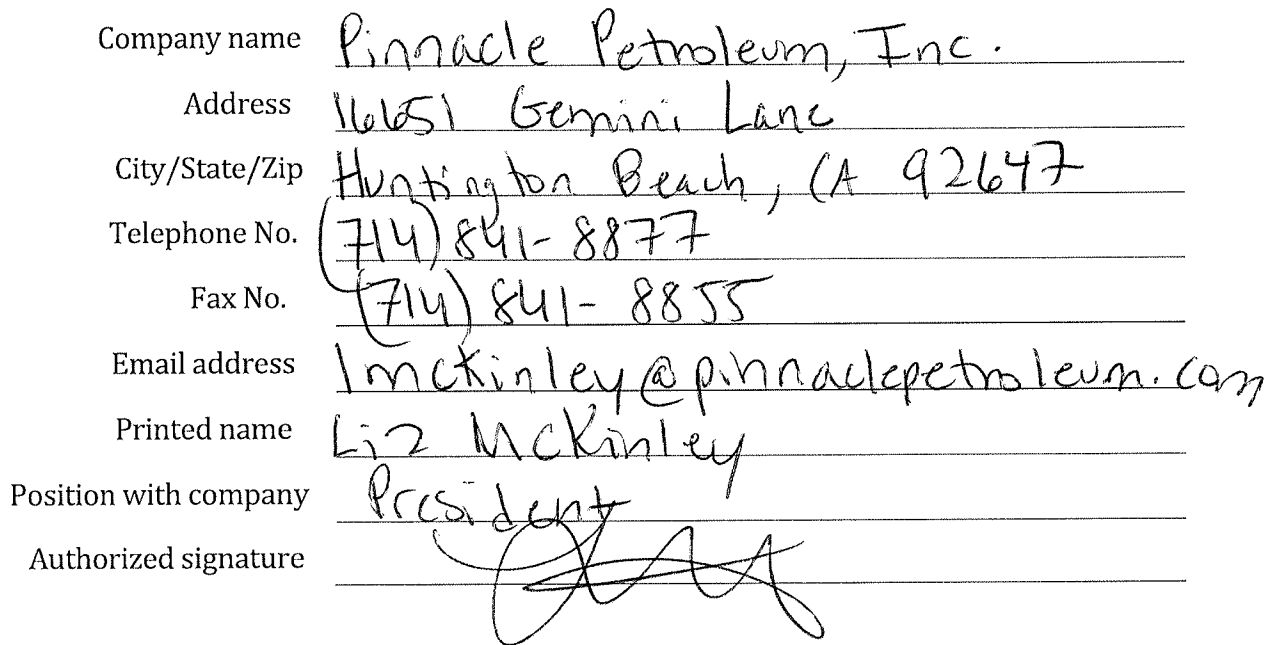 Company name Pinnacle Petroleum, Inc.
Address 16651 Gemini Lane
City/State/Zip Huntington Beach, CA 92647
Telephone No. (714) 841-8877
Fax No. (714) 841-8855
Email address lmckinley@pinnaclepetroleum.com
Printed name Liz McKinley
Position with company President
Authorized signature